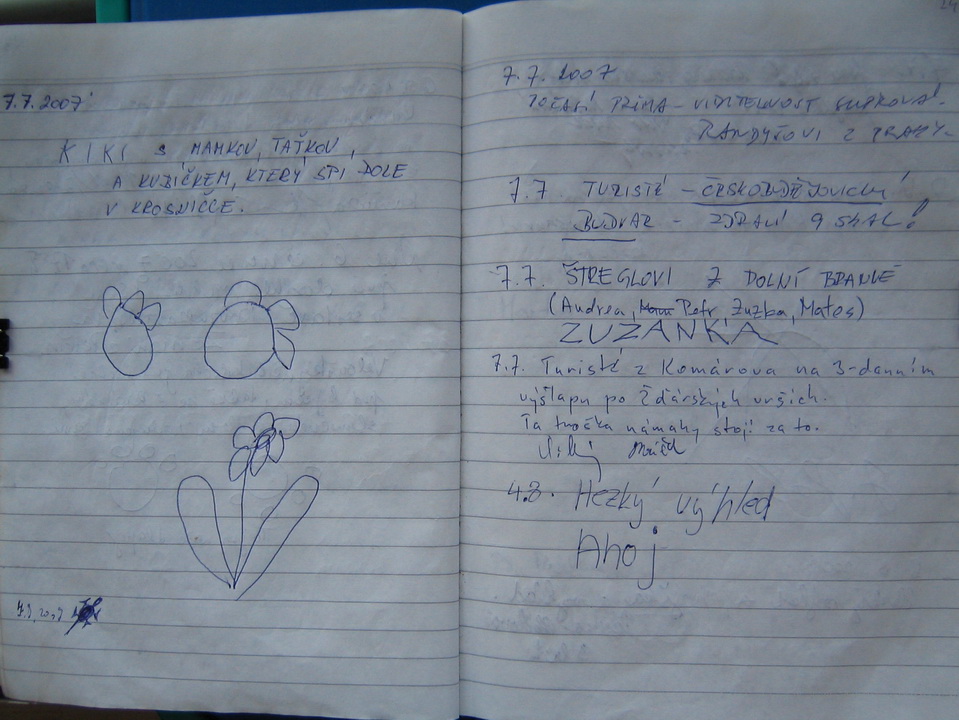 7.7.2007
KIKI S MAMKOU, TAŤKOU,
A KUBÍČKEM, KTERÝ SPÍ DOLE
V KROSNIČCE.
7.7.2007
POČASÍ PRIMA - VIDITELNOST SUPROVÁ.
Z PRAHY.
7.7 TURISTÉ - ČESKOBUDĚJOVICKÝ
BUDVAR - ZDRAVÍ 9 SKAL!
7.7. ŠTREGLOVI Z DOLNÍ BRANNÉ
(Andrea, Petr, Zuzba, Matos)
ZUZANKA
7.7. Turisté z Komárova na 3-denním
výšlapu po Žďárských vrších.
Ta troška námahy stojí za to.
4.8. Hezký výhled
Ahoj